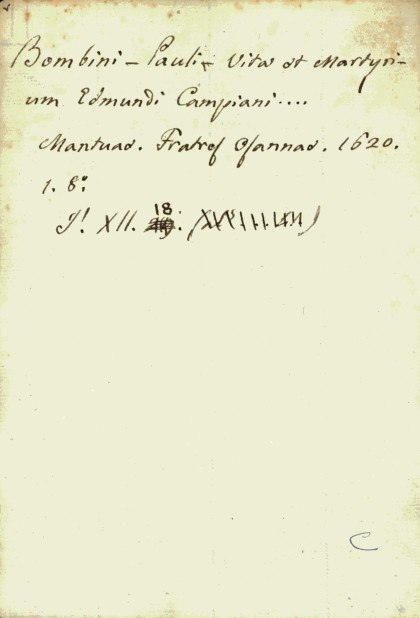 Bombini - Pauli - Vita et Martyri-
um Edmundi Campiani....
Mantuae. Fratres Osannae. 1620.
1. 8º
J! XII. 18
C